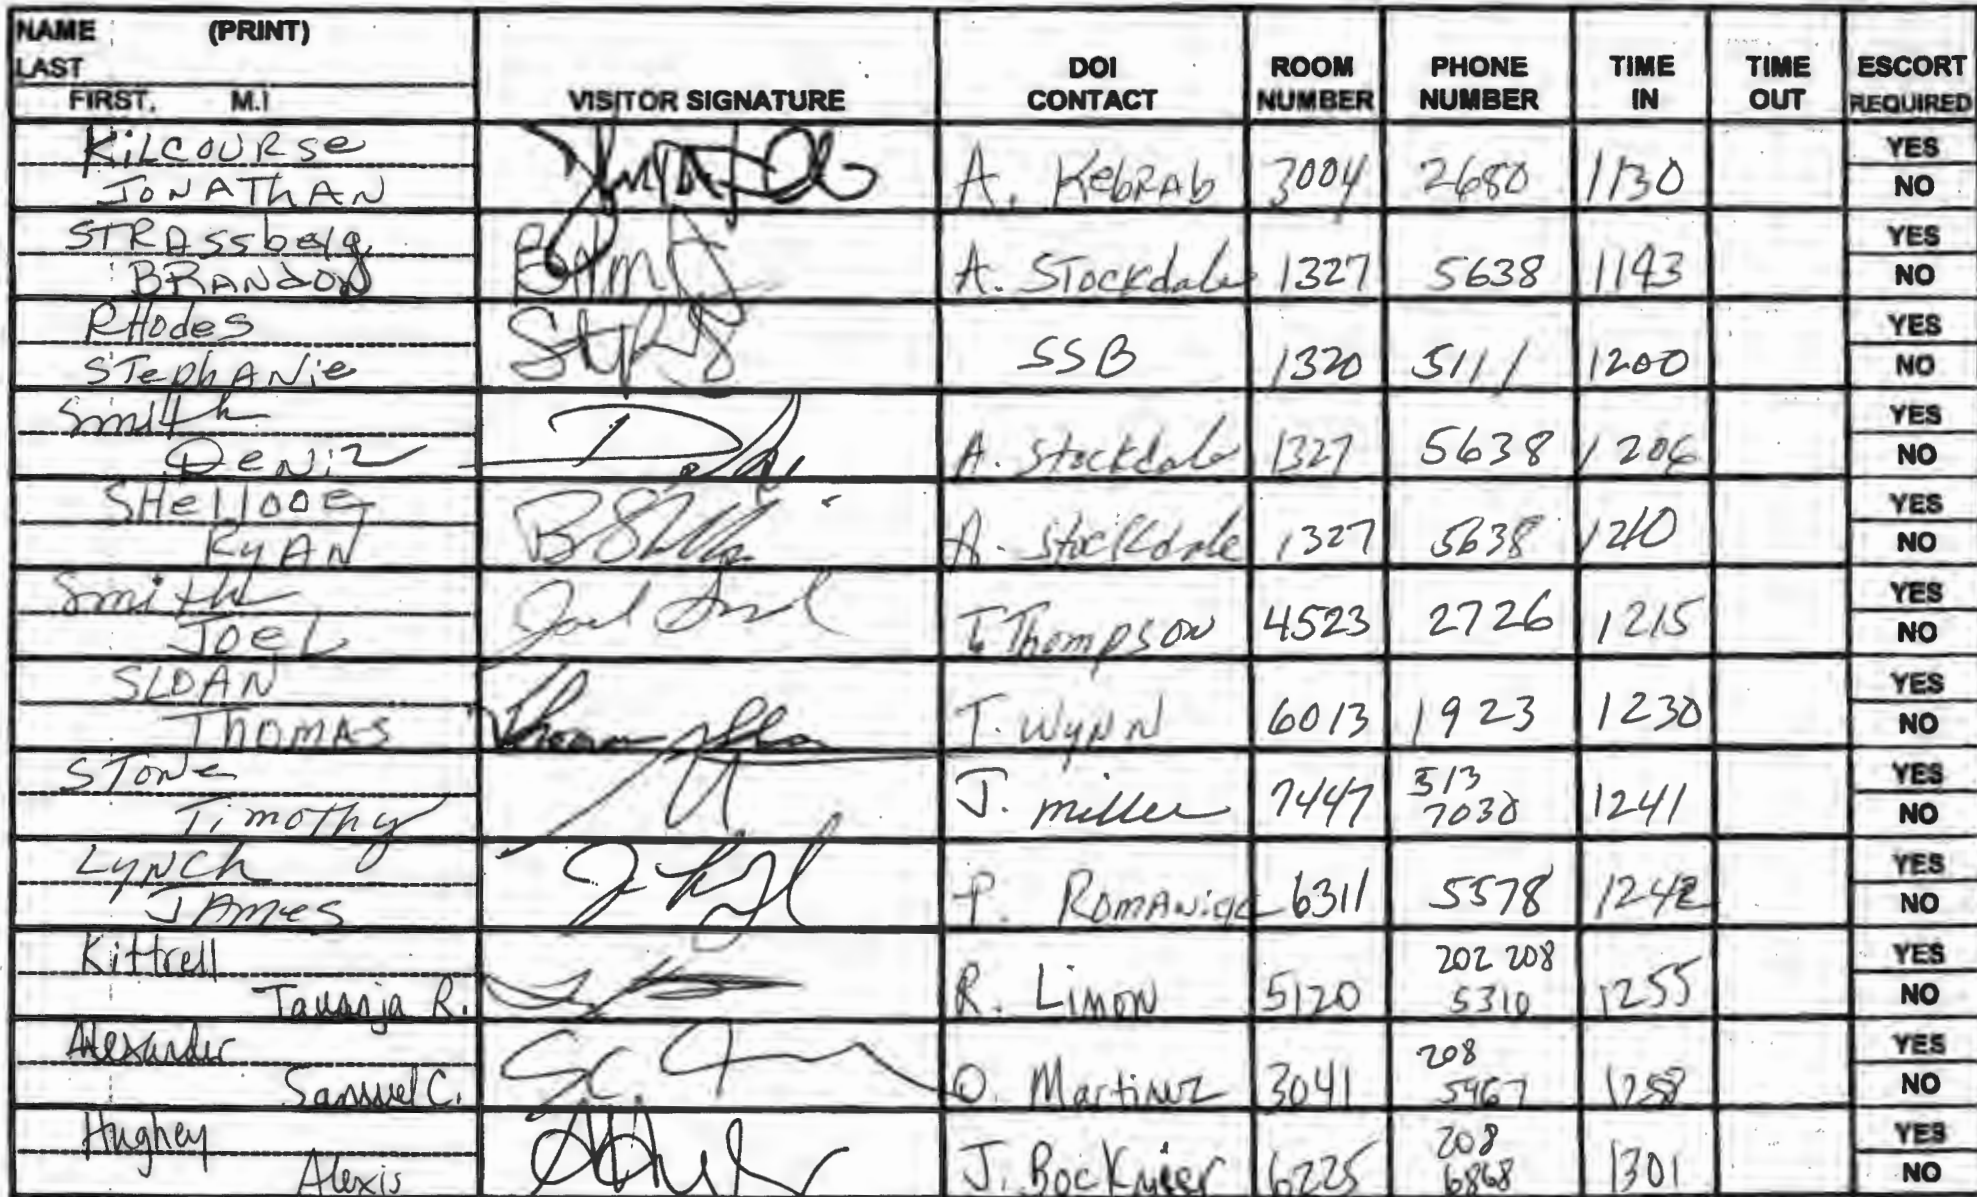 NAME (PRINT)
LAST
FIRST, M.I
VISITOR SIGNATURE
DOI CONTACT
ROOM NUMBER
PHONE NUMBER
TIME IN
TIME OUT
ESCORT REQUIRED
KiLCOURSe
JONATHAN
A. KebRAb 3004 2680 1130
YES
NO
STRAssbeig
BRANdON
A. STockdale 1327 5638 1143
YES
NO
RHodes
STephANie
SSB 1320 5111 1200
YES
NO
Smith
DeNiz
A. Stockdale 1327 5638 1206
YES
NO
SHellooe
RyAN
A. Stockdale 1327 5638 1210
YES
NO
Smith
JOEL
T. Thompson 4523 2726 1215
YES
NO
SLOAN
THOMAS
T. WyNN 6013 1923 1230
YES
NO
STone
Timothy
J. miller 7447 513 7030 1241
YES
NO
LyNCh
JAmes
P. 6311 5578 1242
YES
NO
Kittrell
R.
R. Limon 5120 202 208 5310 1255
YES
NO
Alexander
Samuel C.
O. Martinez 3041 208 5467 1258
YES
NO
Hughey
Alexis
J. 6225 208 6868 1301
YES
NO